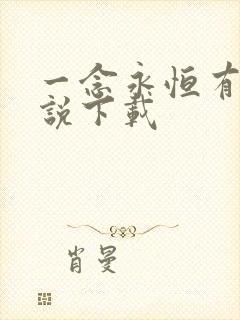 一念永恒有
説下載
肖曼